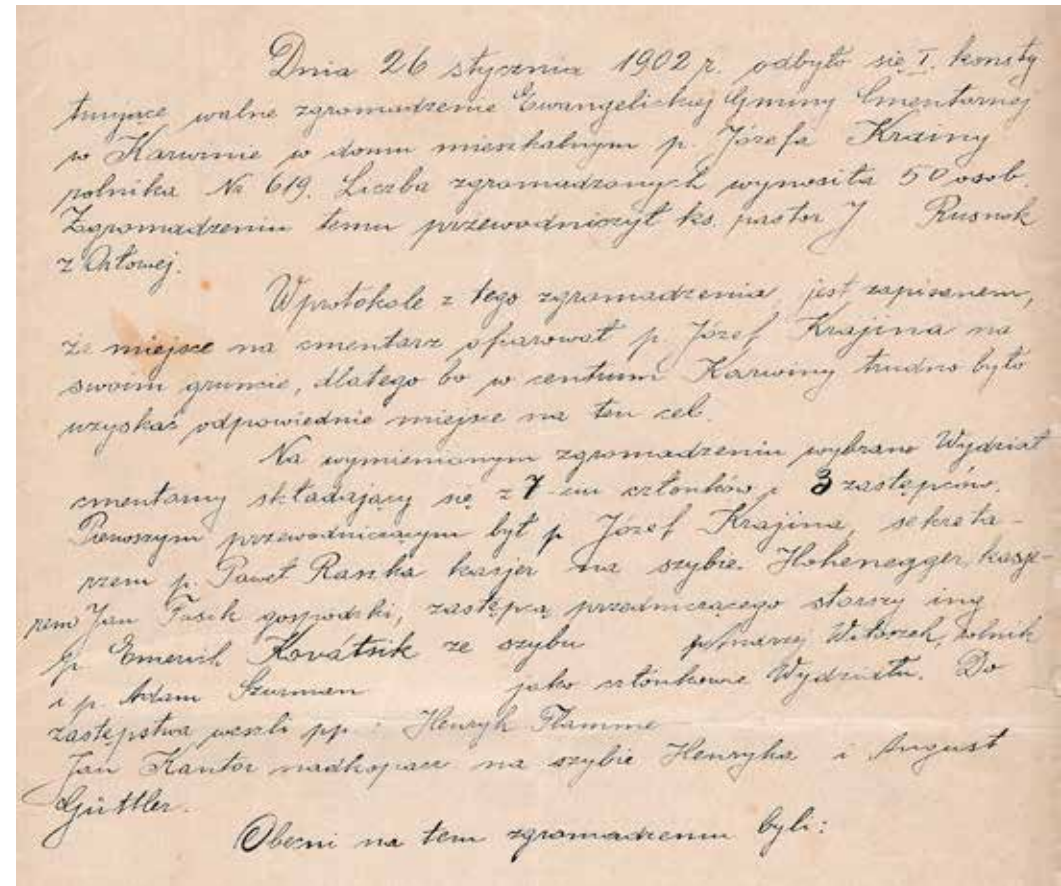 Dnia 26 stycznia 1902 r. odbyło się I. konsty
tuujące walne zgromadzenie Ewangelickiej Gminy Cmentarnej
w Karwinie w domu mieszkalnym p. Józefa Krainy
rolnika No 619. Liczba zgromadzonych wynosiła 50 osob.
Zgromadzeniu temu przewodniczył ks. pastor J Rusnok
z Orłowej.
W protokole z tego zgromadzenia, jest zapisanem,
że miejsce na cmentarz ofiarował p. Józef Krajina na
swoim gruncie, dlatego bo w centrum Karwiny trudno było
uzyskać odpowiednie miejsce na ten cel.
Na wymienionym zgromadzeniu wybrano Wydział
cmentarny składający się z 7-miu członków i 3 zastępców.
Pierwszym przewodniczącym był p Józef Krajina, sekreta-
rzem p. Paweł Raszka kasjer na szybie. Hohenegger, kasje-
rem Jan Fusik gospodzki, zastępcą przedniczącego starszy ing
p. Emerich Kovátsik ze szybu Witoszek, rolnik
i p. Adam Szurman jako członkowie Wydziału. Do
zastępstwa weszli pp: Henryk Flamme
Jan Kantor nadkopacz na szybie Henryka i August
Güttler.
Obecni na tem zgromadzeniu byli: